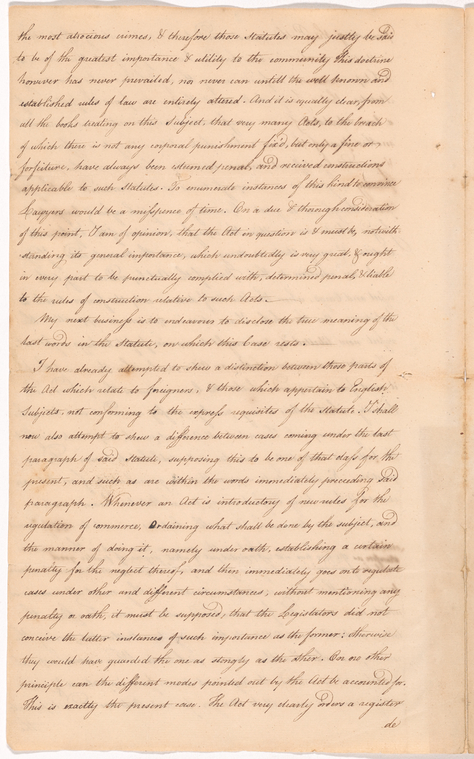 the most atrocious crimes, & therefore those Statutes may justly be said
to be of the greatest importance & utility to the community this doctrine
however has never prevailed, nor never can untill the well known and
established rules of law are entirely altered. And it is equally clear from
all the books treating on this Subject, that very many Acts, to the breach
of which there is not any corporal punishment fix'd, but only a fine or
forfeiture, have always been esteemed penal, and received instructions
applicable to such Statutes. To enumerate instances of this kind to convince
Lawyers would be a misspence of time. On a due & thorough consideration
of this point, I am of opinion, that the Act in question is & must be, notwith
standing its general importance, which undoubtedly is very great, & ought
in every part to be punctually complied with, determined penal, & liable
to the rules of construction relative to such Acts.
My next business is to endeavour to disclose the true meaning of the
last words in the Statute, on which this Case rests.
I have already attempted to shew a distinction between those parts of
the Act which relate to foreigners, & those which appertain to English
Subjects, not conforming to the express requisites of the Statute. I shall
now also attempt to shew a difference between cases coming under the last
paragraph of said Statute, supposing this to be one of that class for the
present, and such as are within the words immediately preceeding said
paragraph. Whenever an Act is introductory of new rules for the
regulation of commerce, Ordaining what shall be done by the subject, and
the manner of doing it, namely under oath, establishing a certain
penalty for the neglect thereof, and then immediately goes on to regulate
cases under other and different circumstances, without mentioning any
penalty or oath, it must be supposed, that the Legislators did not
conceive the latter instances of such importance as the former; otherwise
they would have guarded the one as strongly as the other. On no other
principle can the different modes pointed out by the Act be accounted for.
This is exactly the present case. The Act very clearly orders a register
de